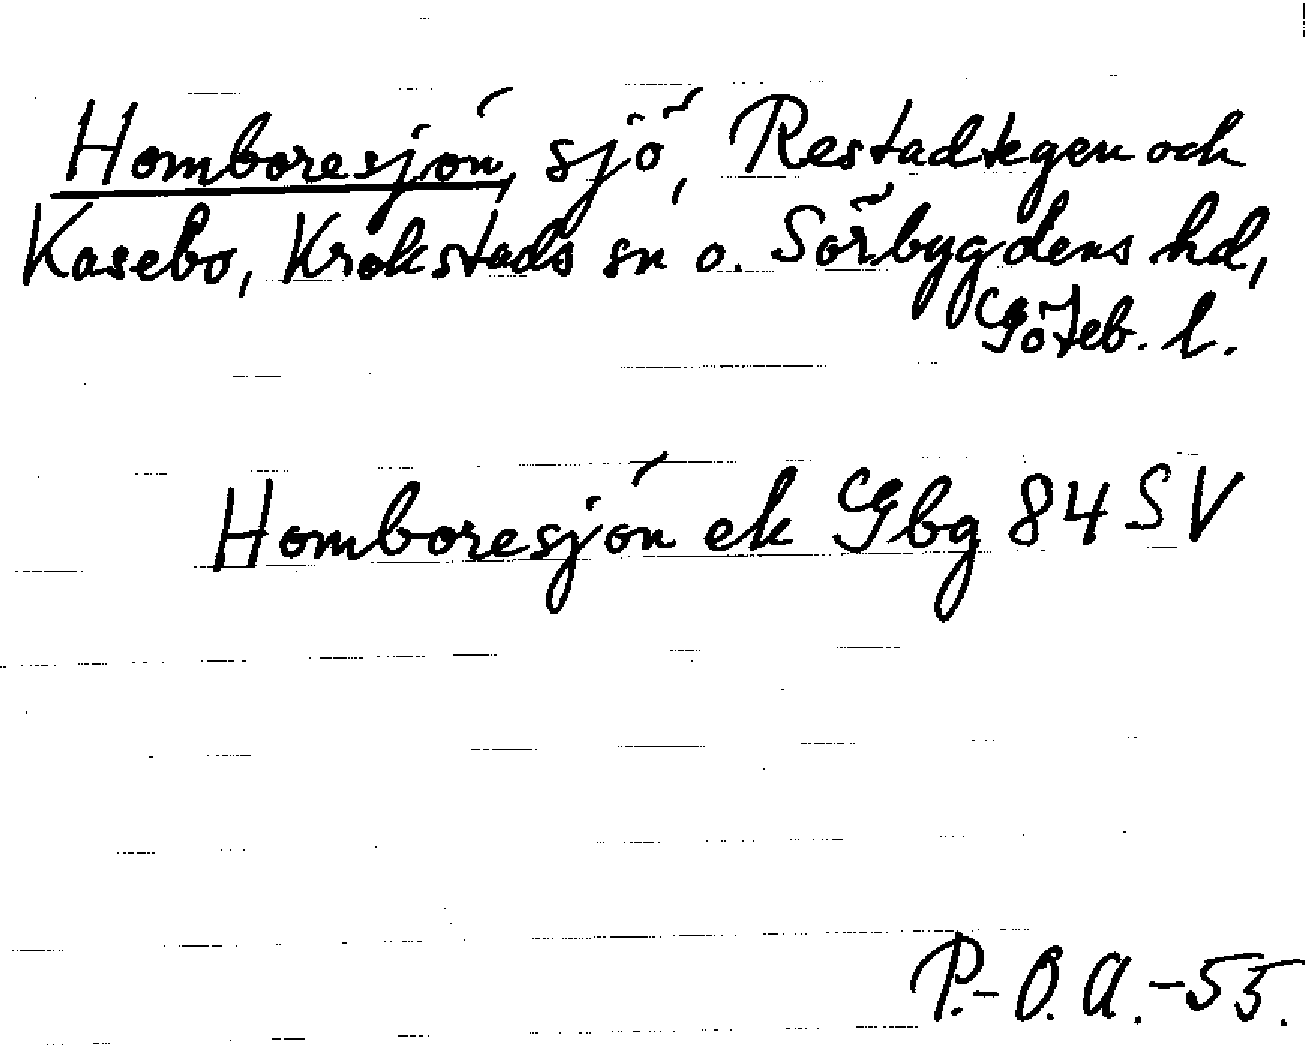 Homboresjön, sjö, Restadtegen och
Kasebo, Krokstads sn o. Sörbygdens hd,
Göteb. l.
Homboresjön ek Gbg 84 SV
P.-O. A.-55.